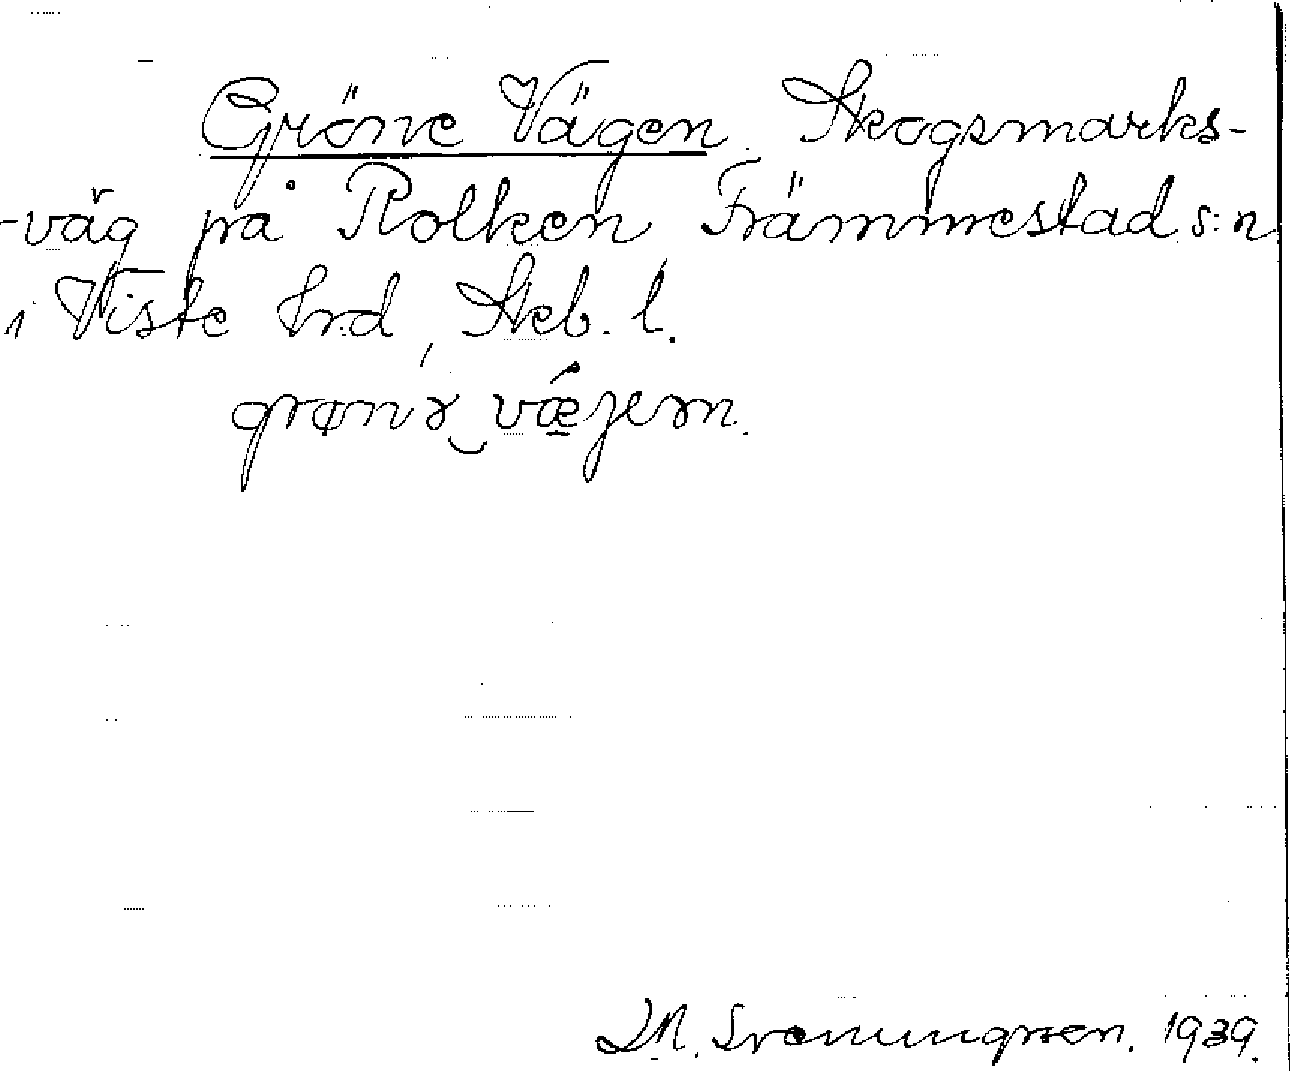 Gröne Vägen. Skogsmarks-
-väg på Rolken Främmestad s:n
i Viste hrd, Skb. l.
grøn'ɤ‿vǽjɤn.
D.N. Svenungsson. 1939.